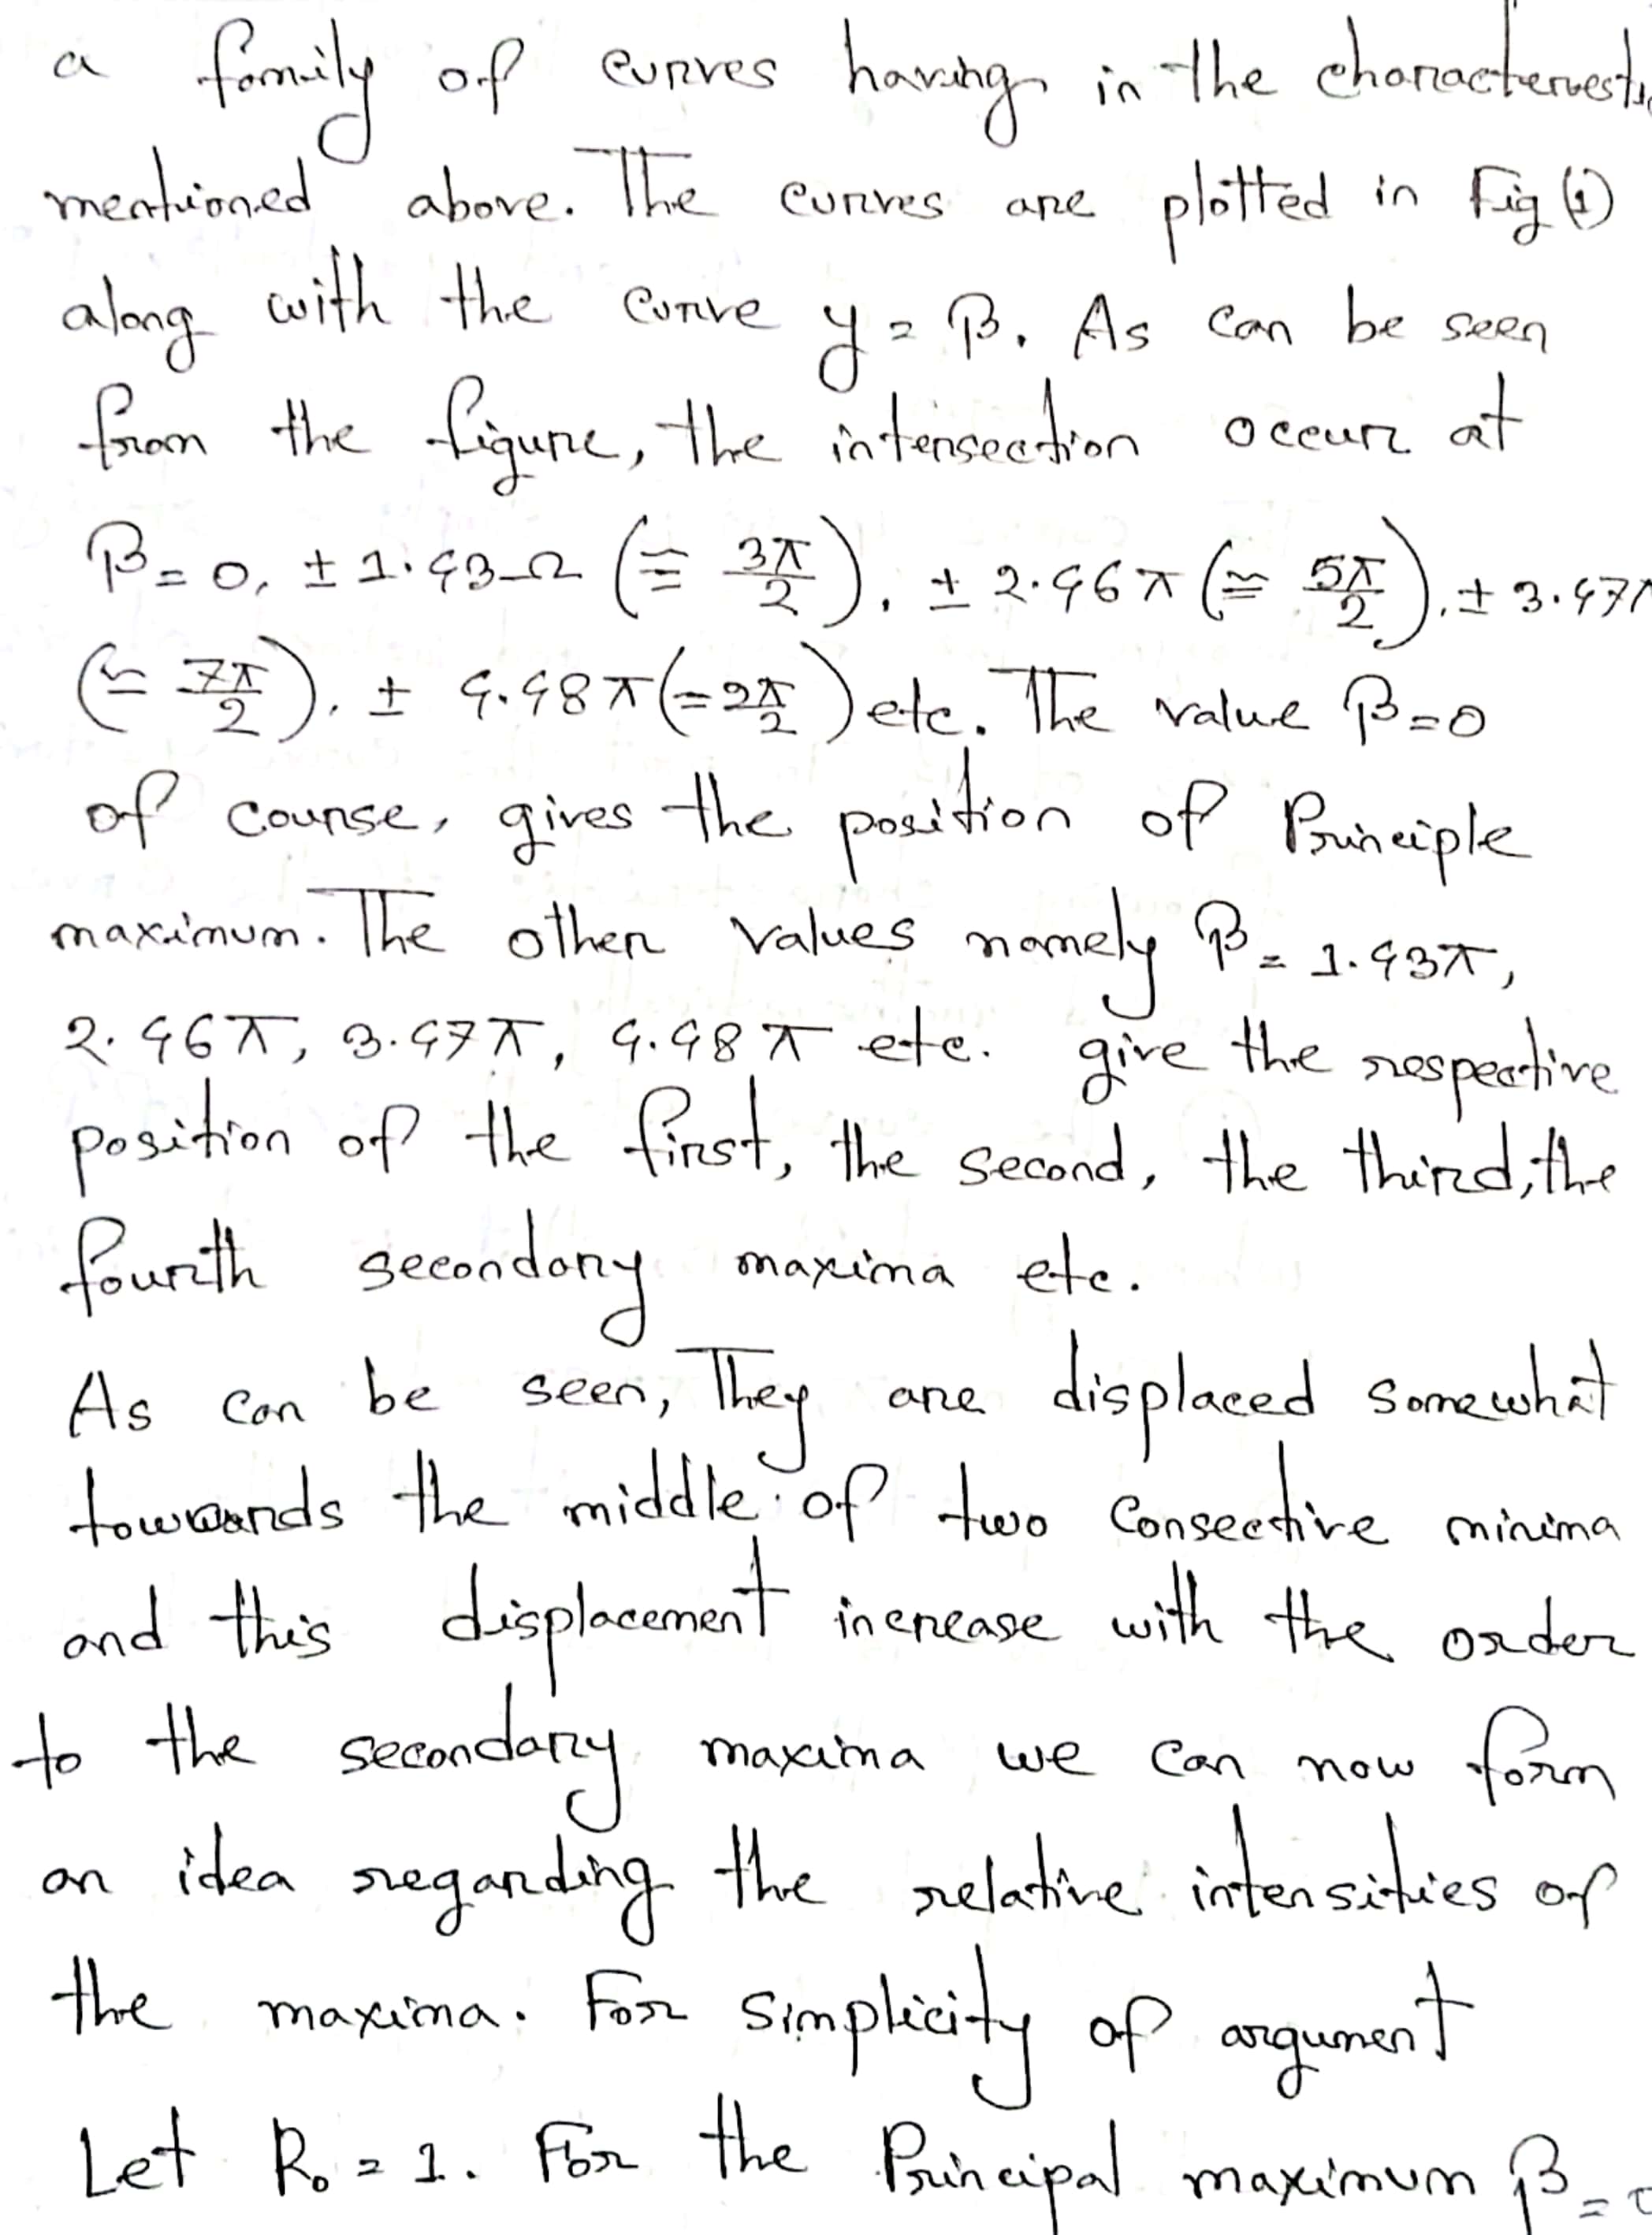 a family of curves having in the characterest
mentioned above. The curves are plotted in Fig (1)
along with the curve y = β. As can be seen
from the figure, the intersection occur at
β = 0, ± 1.43 Ω (≅ 3π/2), ± 2.46π (≅ 5π/2), ± 3.47π
(≃ 7π/2), ± 4.48π (= 9π/2) etc. The value β = 0
of course, gives the position of Principle
maximum. The other values namely β = 1.43π,
2.46π, 3.47π, 4.48π etc. give the respective
position of the first, the second, the third, the
fourth secondary maxima etc.
As can be seen, They are displaced somewhat
towards the middle of two Consective minima
and this displacement increase with the order
to the secondary maxima we can now form
an idea regarding the relative intensities of
the maxima. For simplicity of argument
Let R₀ = 1. For the Principal maximum β = 0